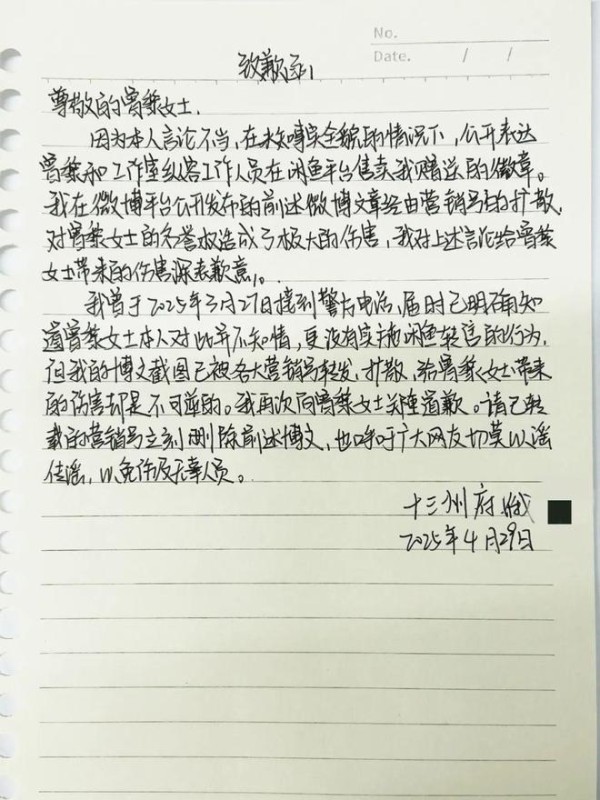 No.
Date. / /
致歉函
尊敬的曾黎女士.
因为本人言论不当,在未知晓事实全貌的情况下,公开表达
曾黎和工作室纵容工作人员在闲鱼平台售卖我赠送的徽章。
我在微博平台公开发布的前述微博文章经由营销号的扩散,
对曾黎女士的名誉权造成了极大的伤害,我对上述言论给曾黎
女士带来的伤害深表歉意。
我曾于2025年3月27日接到警方电话,届时已明确知
道曾黎女士本人对此并不知情,更没有实施闲鱼转售的行为,
但我的博文截图已被各大营销号转发、扩散,给曾黎女士带来
的伤害却是不可逆的。我再次向曾黎女士郑重道歉。请已转
载的营销号立刻删除前述博文,也呼吁广大网友切莫以谣
传谣,以免伤及无辜人员。
十三州府
2025年4月29日